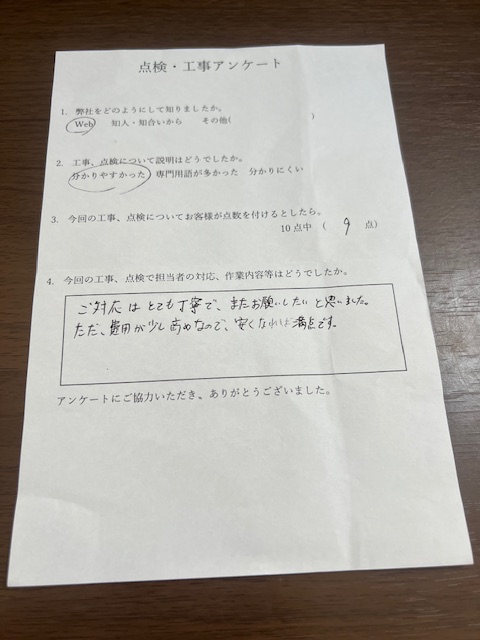 点検・工事アンケート
1. 弊社をどのようにして知りましたか。
Web 知人・知合いから その他( )
2. 工事、点検について説明はどうでしたか。
分かりやすかった 専門用語が多かった 分かりにくい
3. 今回の工事、点検についてお客様が点数を付けるとしたら。
10点中 ( 9 点)
4. 今回の工事、点検で担当者の対応、作業内容等はどうでしたか。
ご対応はとても丁寧で、またお願いしたいと思いました。
ただ、費用が少し高めなので、安くなれば満点です。
アンケートにご協力いただき、ありがとうございました。